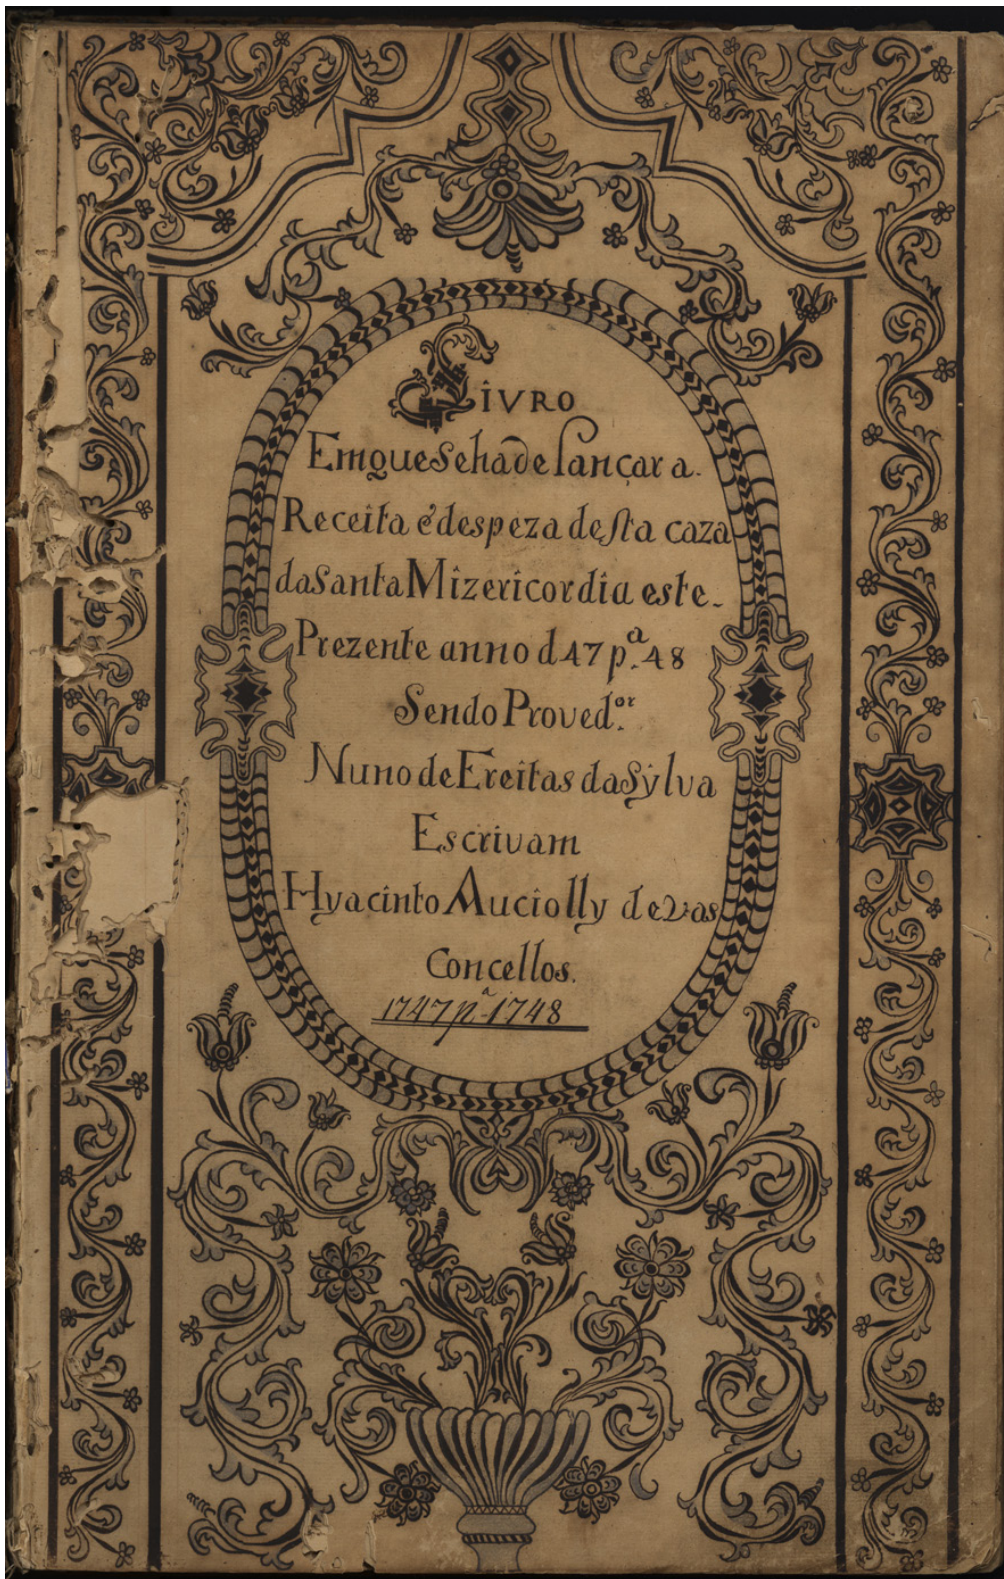 LIVRO
Em que Se ha de lançar a.
Receita é despeza desta caza
da Santa Mizericordia este-
Prezente anno d 47 p.ª 48
Sendo Proved.or
Nuno de Freitas da Sylva
Escrivam
Hyacinto Auciolly de Vas
Concellos.
1747 p.ª 1748